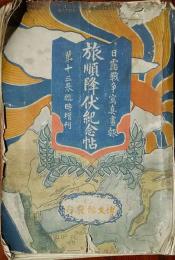 日露戰爭寫眞畫報
旅順降伏紀念帖
第十三卷臨時增刊
博文館發行